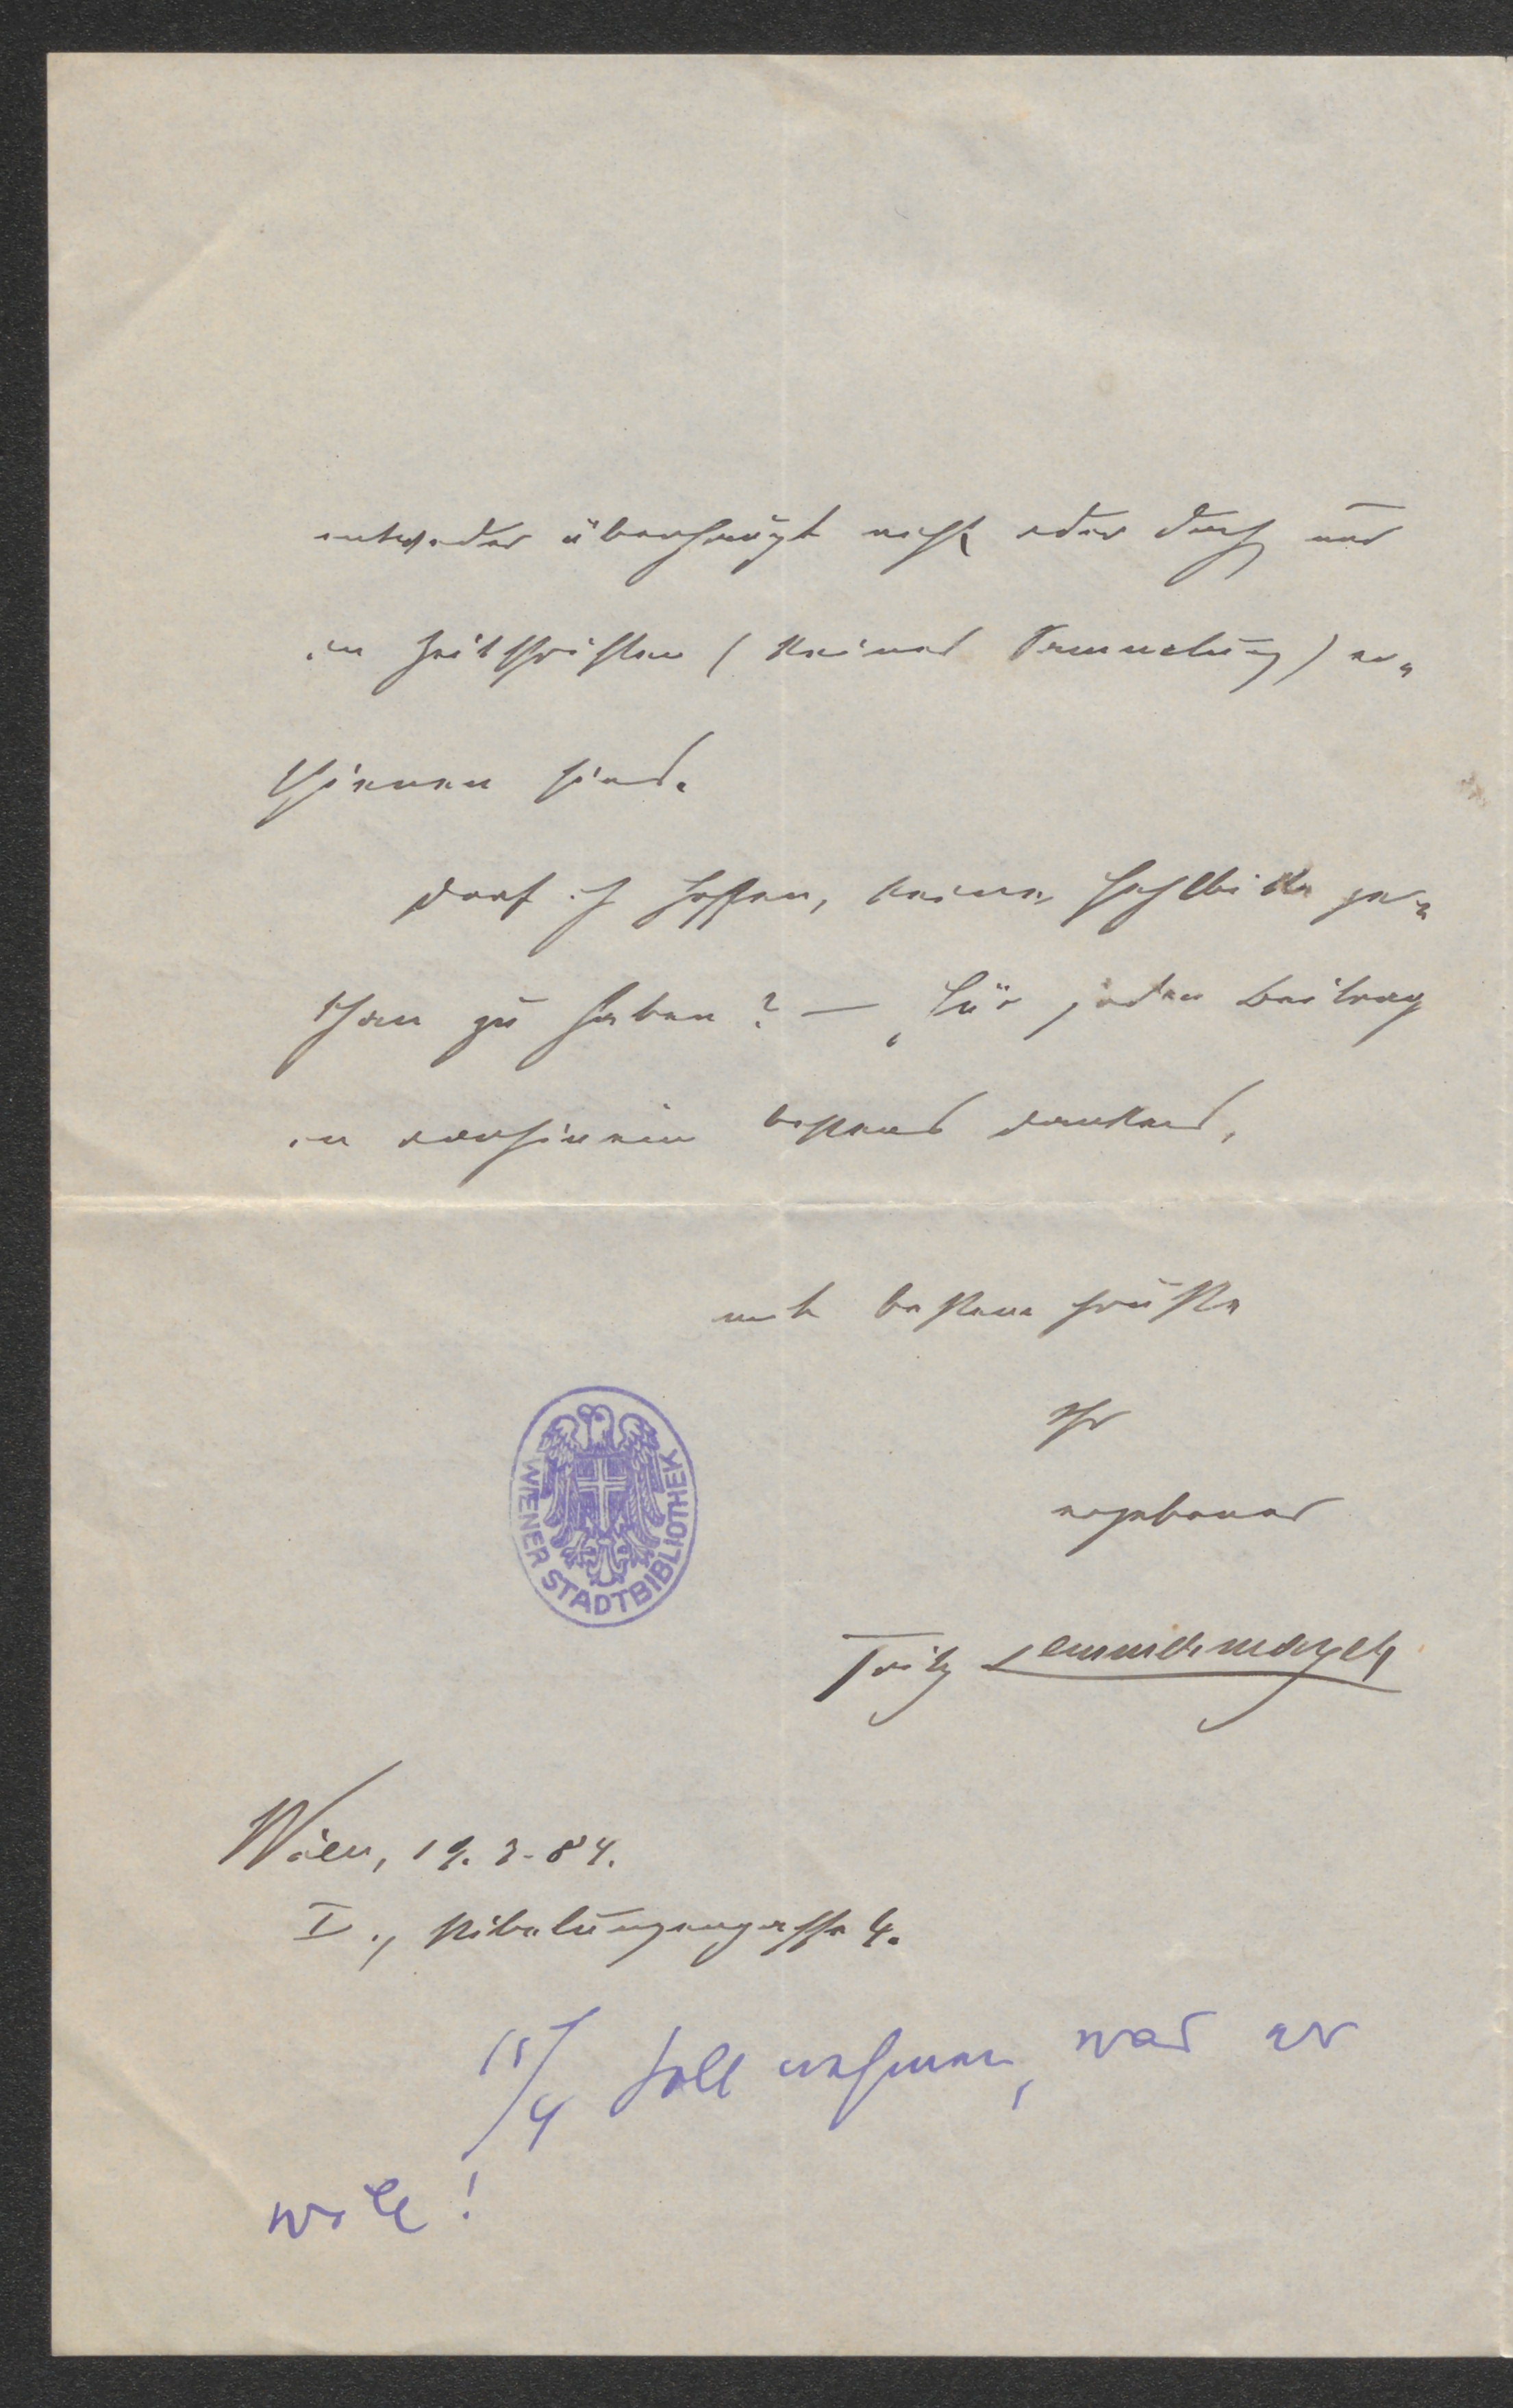 entweder überhaupt nicht oder doch nur
in Zeitschriften (keiner Sammlung) er-
schienen sind.
Darf ich hoffen, keine Fehlbitte ge-
than zu haben? — Für jeden Beitrag
im vorhinein bestens dankend,
mit bestem Gruße
Ihr
ergebener
Fritz Lemmermayer
WIENER STADTBIBLIOTHEK
Wien, 19. 3. 84.
I., Nibelungengasse 4.
15/4 soll nehmen, was er
will!